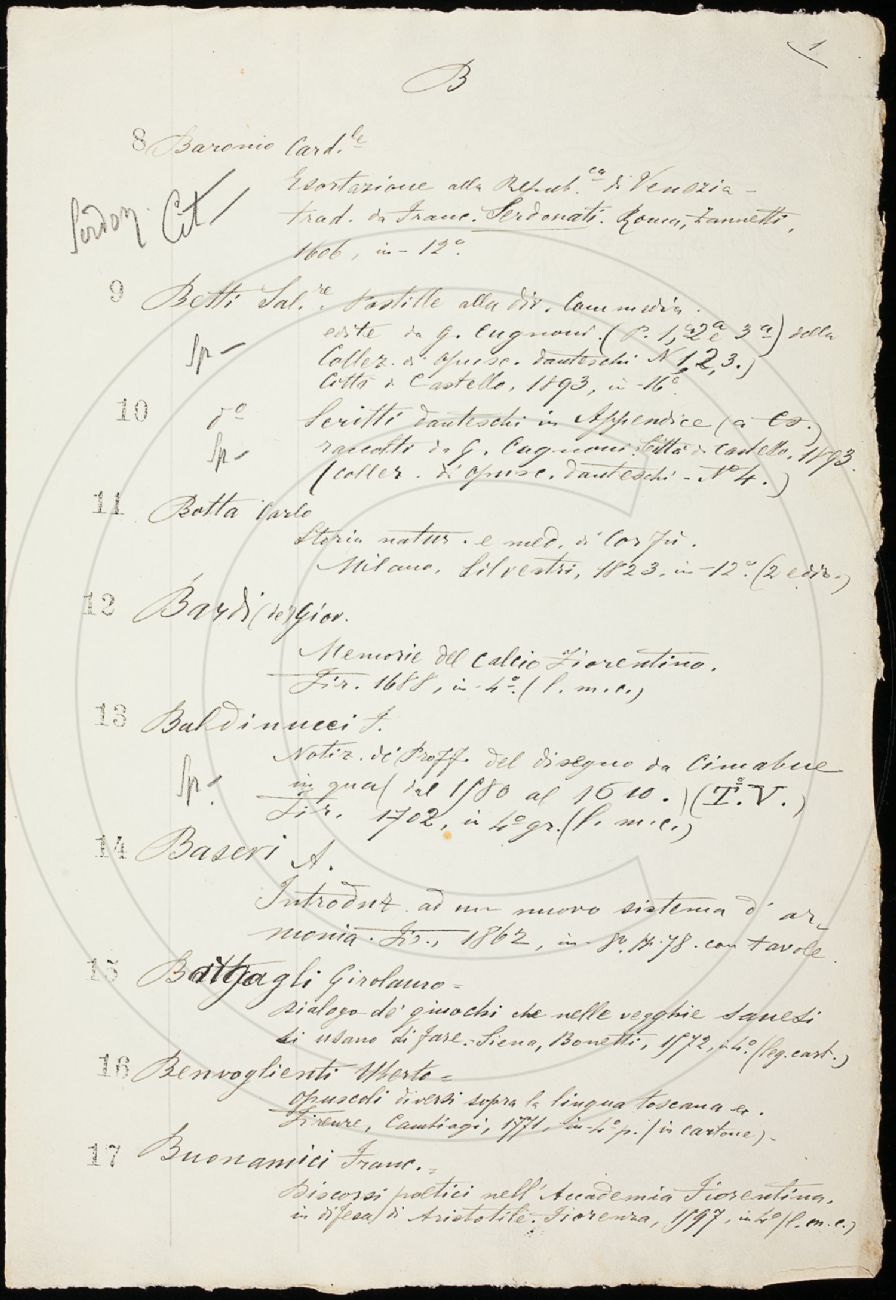 1
B
8 Baronio Card.le
Esortazione alla Repub.ca di Venezia -
Cit trad. da Franc. Serdonati. Roma, Zannetti,
1606, in - 12°.
9 Betti Sal.re Postille alla div. Commedia.
edite da G. Cugnoni. (P. 1,a 2a e 3a) della
Sp - Collez. di opusc. danteschi N 1, 2, 3.)
Città di Castello, 1893, in - 16°
10 d° Scritti danteschi in Appendice (a cs.)
Sp - raccolti da G. Cugnoni. Città di Castello. 1893.
(collez. di opusc. danteschi - N° 4.)
11 Botta Carlo
Storia natur. e med. di Corfù.
Milano, Silvestri, 1823, in - 12°. (2 ediz.)
12 Bardi (de) Giov.
Memorie del calcio Fiorentino.
Fir. 1688, in - 4°. (l. m. c.)
13 Baldinucci F.
Notiz. de' Proff. del disegno da Cimabue
Sp. in qua (dal 1580 al 1610.) (T.° V.)
Fir. 1702, in 4° gr. (l. m. c.)
14 Basevi A.
Introduz. ad un nuovo sistema d' ar-
monia. Fir., 1862, in - 8°, 78. con tavole.
15 Girolamo =
Dialogo de' giuochi che nelle vegghie sanesi
si usano di fare. - Siena, Bonetti, 1572, in 4°. (leg. cart.)
16 Benvoglienti Uberto =
Opuscoli diversi sopra la lingua toscana ec.
Firenze, Cambiagi, 1771, in - 4° p. (in cartone) -
17 Buonamici Franc. =
Discorsi poetici nell' Accademia Fiorentina,
in difesa di Aristotile. Fiorenza, 1597, in 4° (l. m. c.)